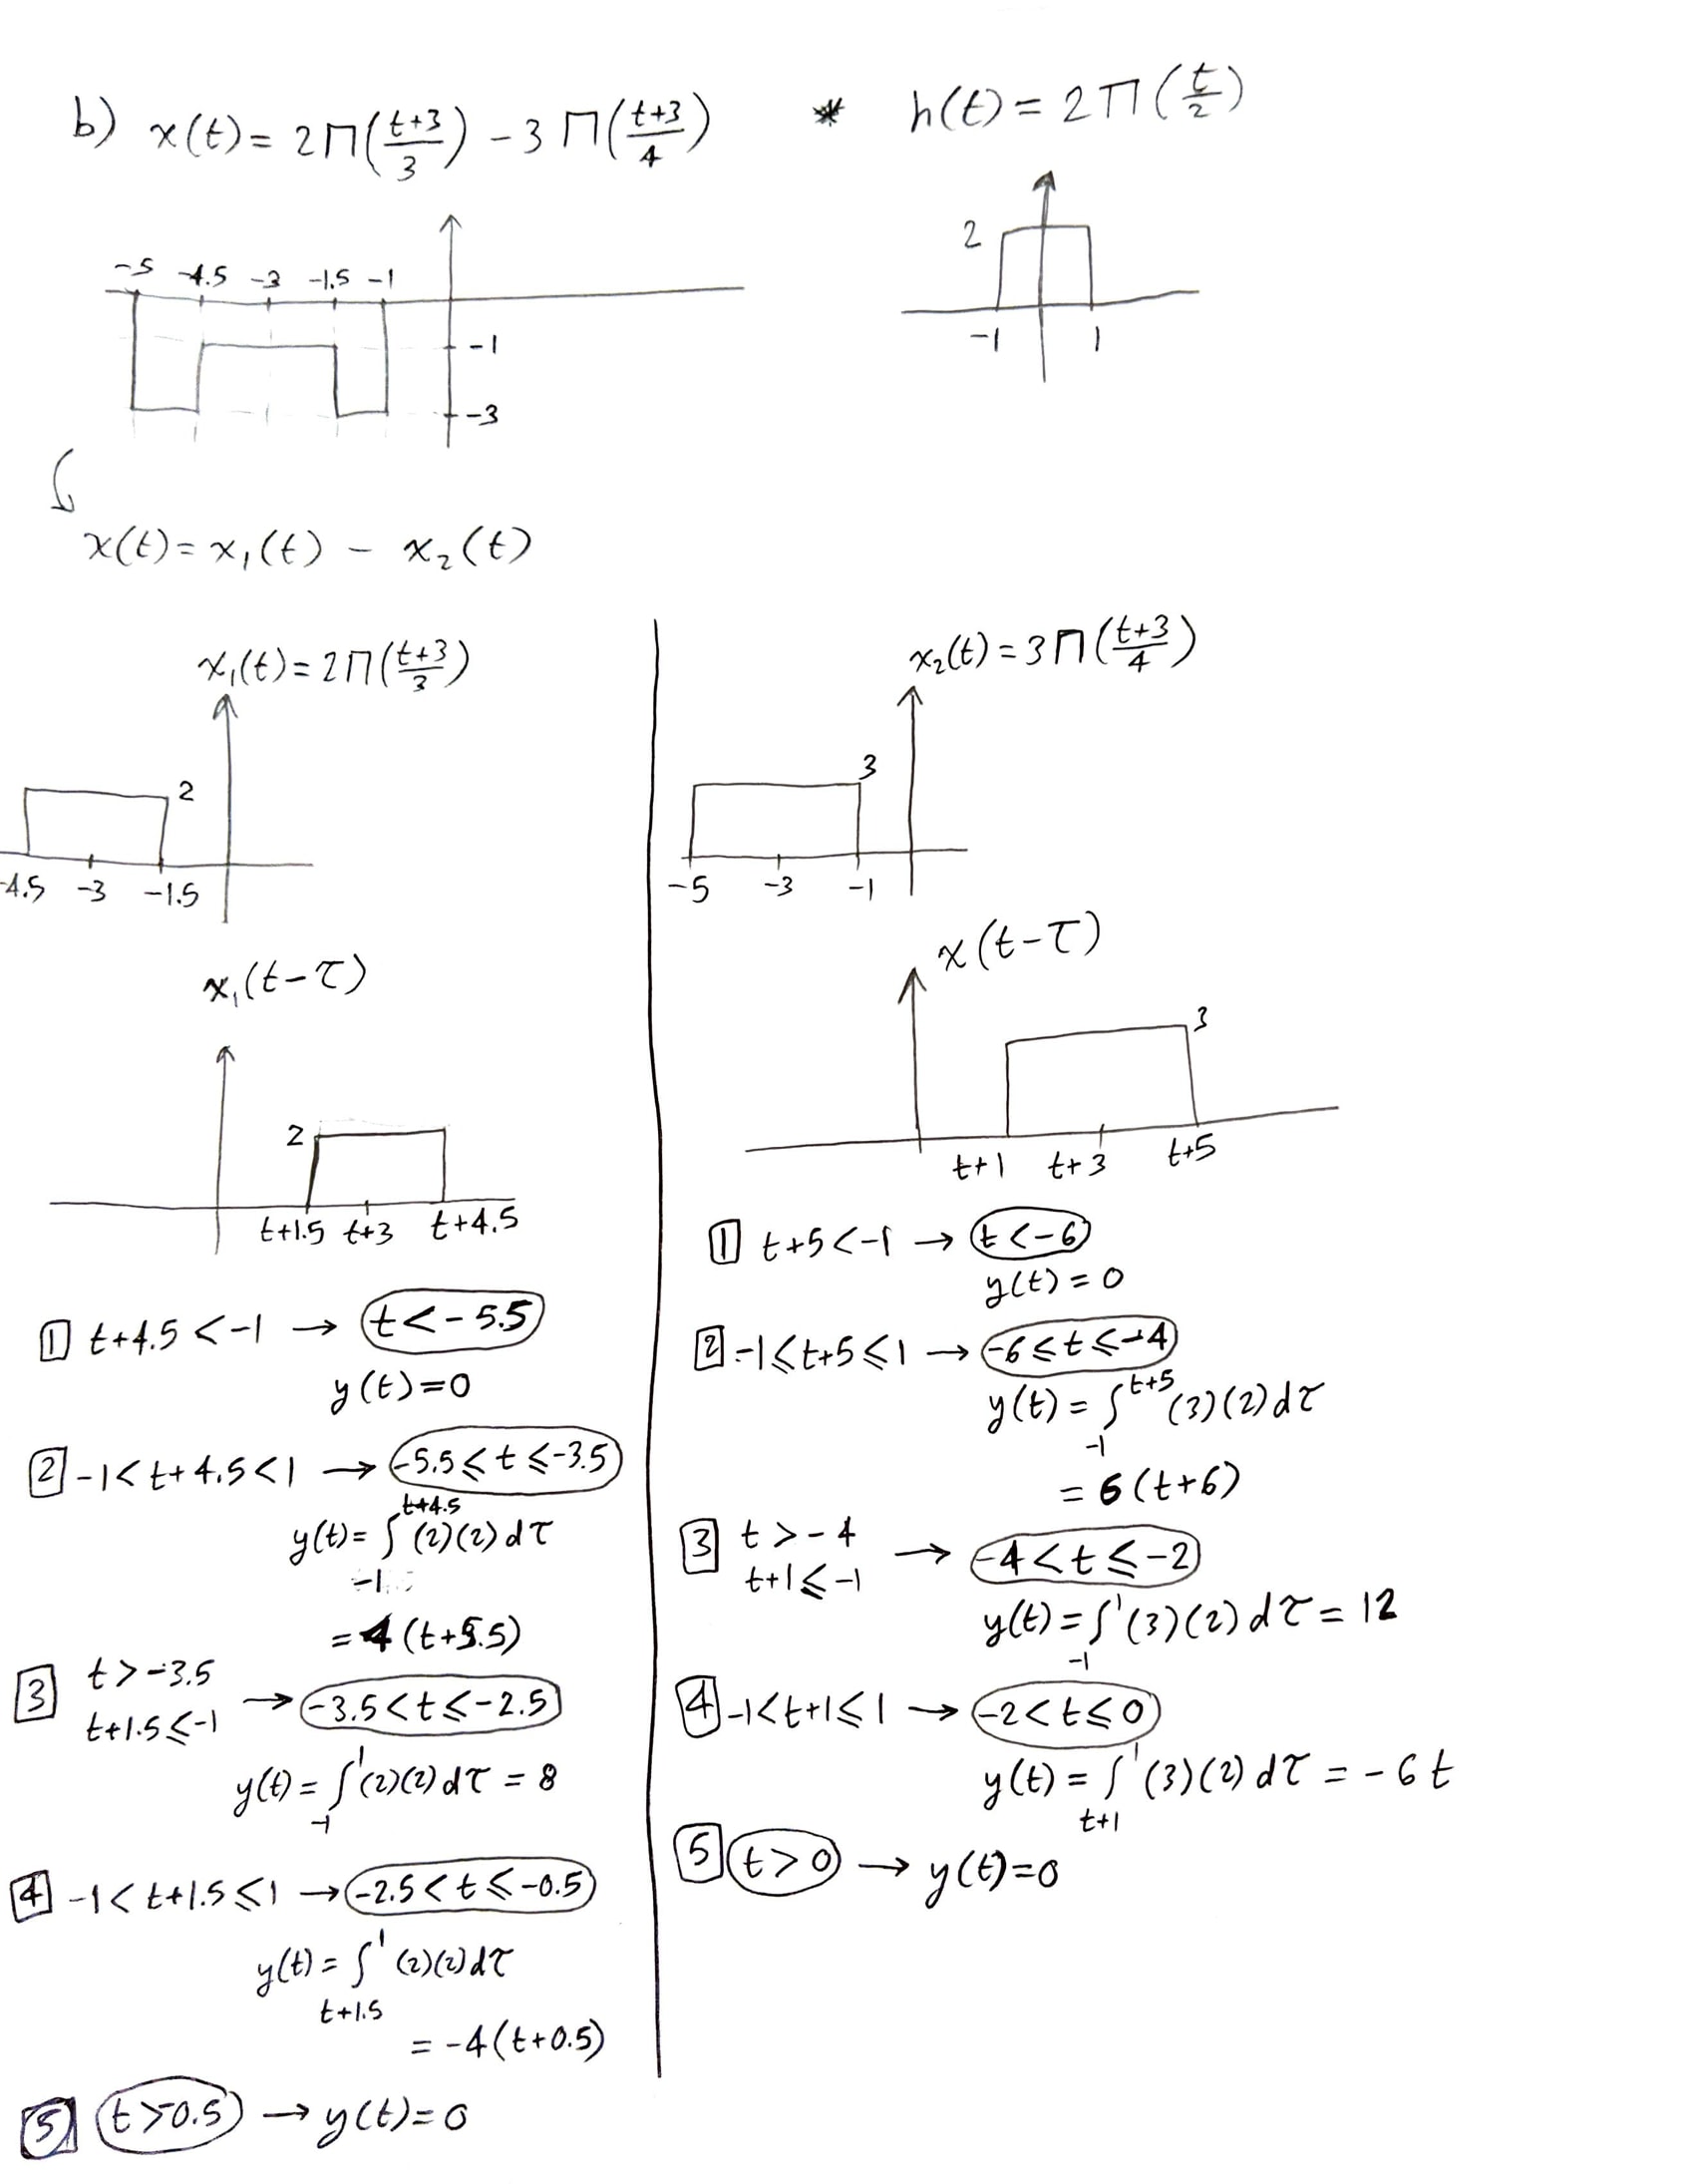 b) x(t) = 2Π((t+3)/3) - 3Π((t+3)/4) * h(t) = 2Π(t/2)
2
-1 1
-5 -4.5 -3 -1.5 -1
-1
-3
x(t) = x₁(t) - x₂(t)
x₁(t) = 2Π((t+3)/3)
2
-4.5 -3 -1.5
x₁(t-τ)
2
t+1.5 t+3 t+4.5
1 t+4.5 < -1 → t < -5.5
y(t) = 0
2 -1 < t+4.5 < 1 → -5.5 ≤ t ≤ -3.5
y(t) = ∫₋₁^(t+4.5) (2)(2) dτ
= 4(t+5.5)
3 t > -3.5
t+1.5 ≤ -1 → -3.5 < t ≤ -2.5
y(t) = ∫₋₁^1 (2)(2) dτ = 8
4 -1 < t+1.5 ≤ 1 → -2.5 < t ≤ -0.5
y(t) = ∫_(t+1.5)^1 (2)(2) dτ
= -4(t+0.5)
5 t > -0.5 → y(t) = 0
x₂(t) = 3Π((t+3)/4)
3
-5 -3 -1
x(t-τ)
3
t+1 t+3 t+5
1 t+5 < -1 → t < -6
y(t) = 0
2 -1 ≤ t+5 ≤ 1 → -6 ≤ t ≤ -4
y(t) = ∫₋₁^(t+5) (3)(2) dτ
= 6(t+6)
3 t > -4
t+1 ≤ -1 → -4 < t ≤ -2
y(t) = ∫₋₁^1 (3)(2) dτ = 12
4 -1 < t+1 ≤ 1 → -2 < t ≤ 0
y(t) = ∫_(t+1)^1 (3)(2) dτ = -6t
5 t > 0 → y(t) = 0